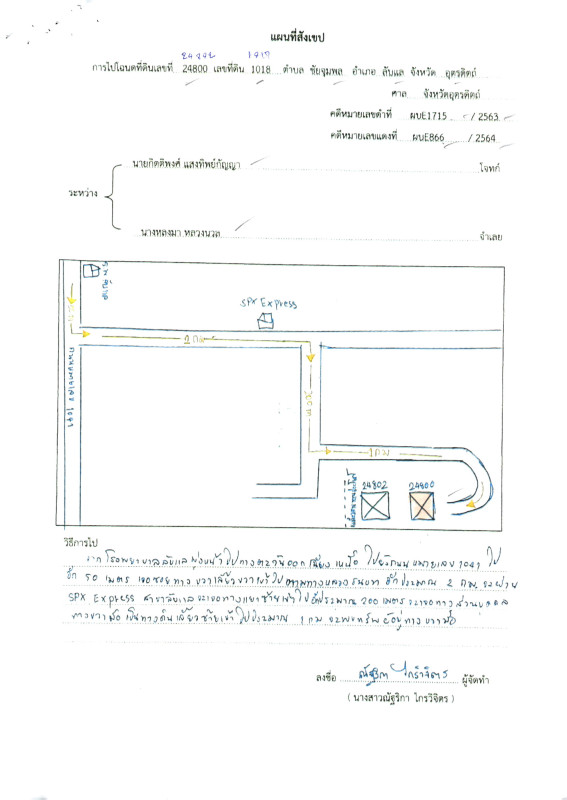 แผนที่สังเขป
24800 1018
การไปโฉนดที่ดินเลขที่ 24800 เลขที่ดิน 1018 ตำบล ชัยจุมพล อำเภอ ลับแล จังหวัด อุตรดิตถ์
ศาล จังหวัดอุตรดิตถ์
คดีหมายเลขดำที่ ผบE1715 / 2563
คดีหมายเลขแดงที่ ผบE866 / 2564
นายกิตติพงศ์ แสงทิพย์กัญญา โจทก์
ระหว่าง
นางหลงมา หลวงนวล จำเลย
SPX Express
2 กม.
1 กม
24802 24800
วิธีการไป
จากโรงพยาบาลลับแล มุ่งหน้าไปทางตะวันออกเฉียงเหนือ ไปยังถนนหมายเลข 1041 ไป
อีก 50 เมตร เจอซอยทางขวาเลี้ยวขวาเข้าไปตามทางหลวงชนบท อีกประมาณ 2 กม. จะผ่าน
SPX Express สาขาลับแล จะเจอทางแยกซ้ายเข้าไปอีกประมาณ 200 เมตร จะเจอทางส่วนบุคคล
ทางขวามือ เป็นทางดินเลี้ยวซ้ายเข้าไปประมาณ 1 กม จะพบทรัพย์อยู่ทางขวามือ
ลงชื่อ ณัฐริกา ไกรวิจิตร ผู้จัดทำ
( นางสาวณัฐริกา ไกรวิจิตร )